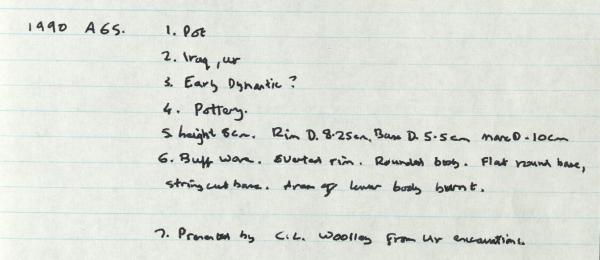 1990 A65. 1. Pot
2. Iraq, ur
3. Early Dynastic ?
4. Pottery.
5. height 8cm. Rim D. 8.25cm, Base D. 5.5cm max D. 10cm
6. Buff ware. Everted rim. Rounded body. Flat round base,
string cut base. Area of lower body burnt.
7. Presented by C.L. Woolley from Ur excavations.